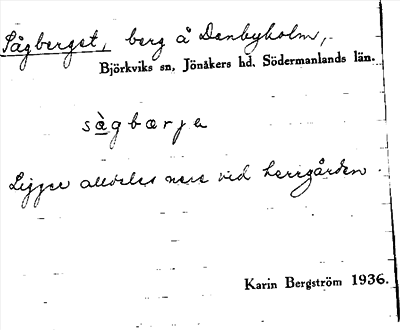 Sågberget, berg å Danbyholm,
Björkviks sn, Jönåkers hd, Södermanlands län.
sàgbærja
Ligger alldeles nere vid herrgården.
Karin Bergström 1936.